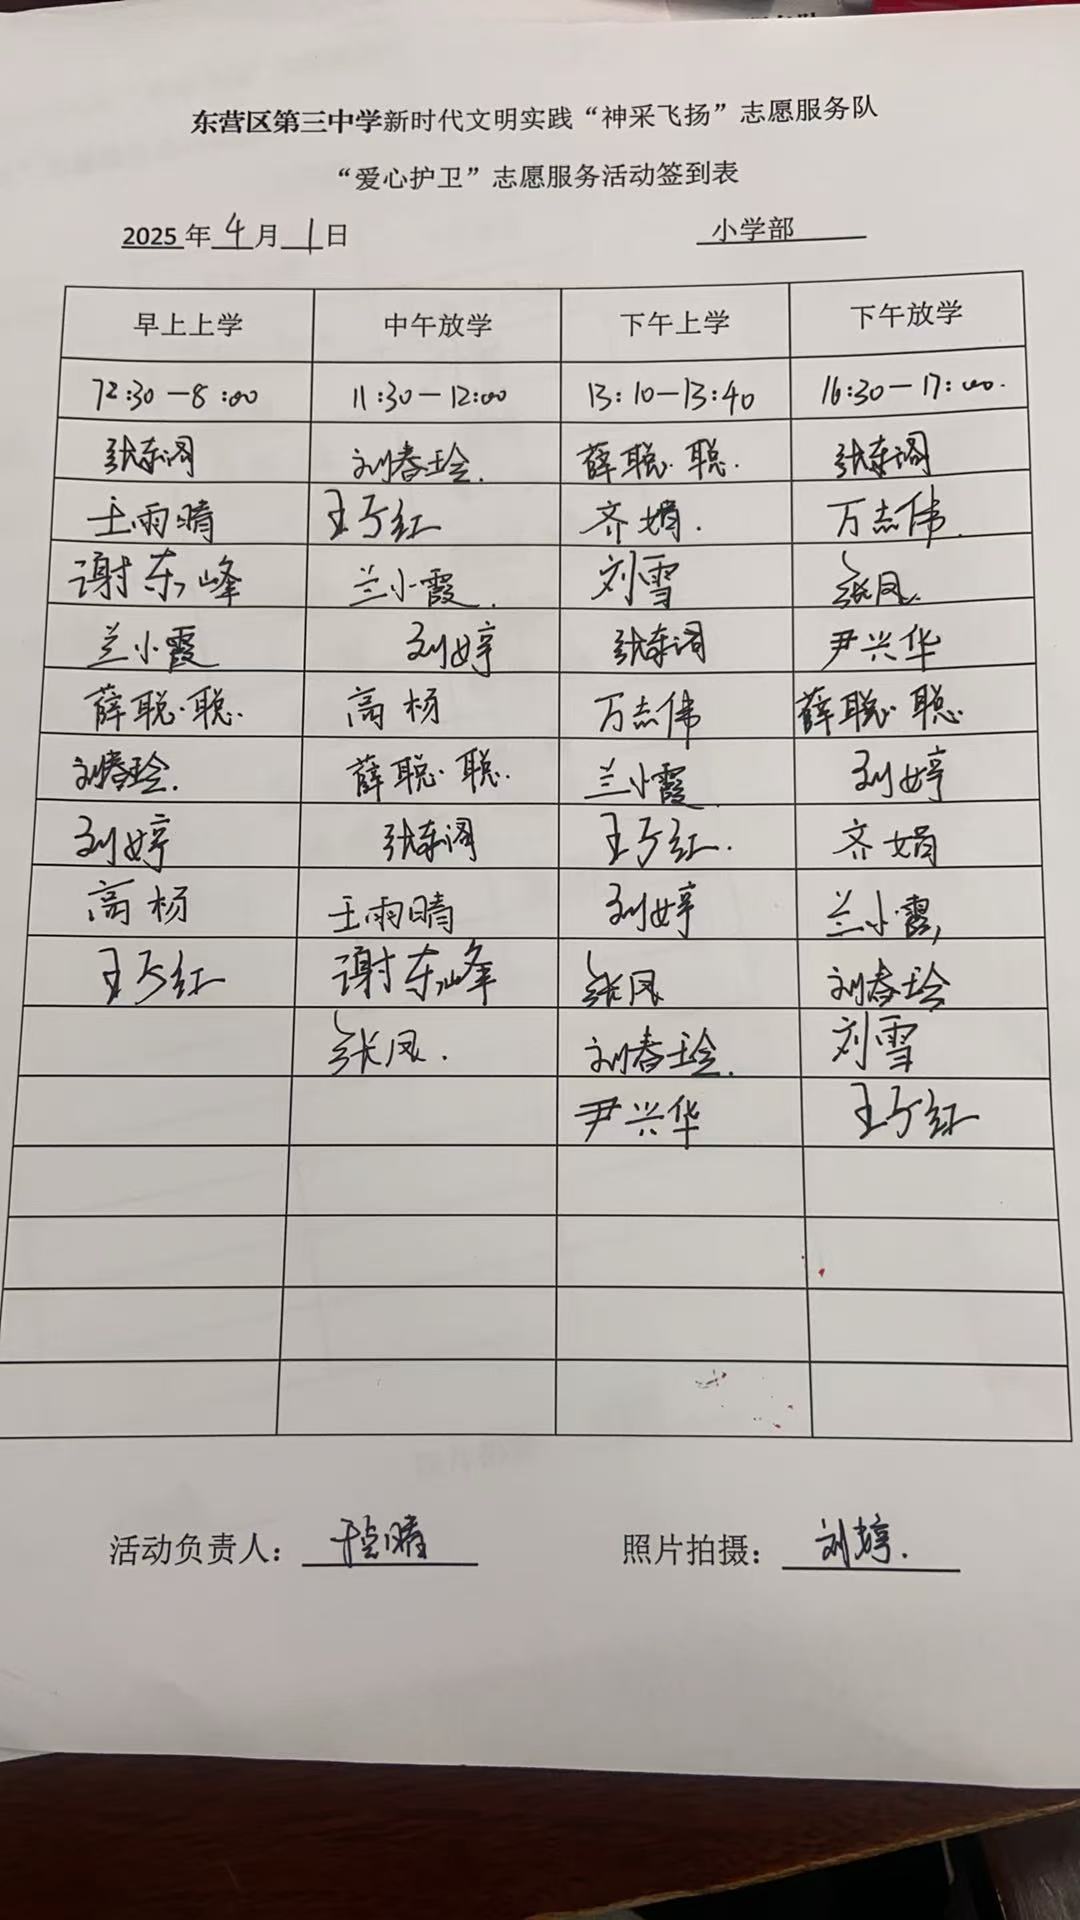 东营区第三中学新时代文明实践“神采飞扬”志愿服务队
“爱心护卫”志愿服务活动签到表
2025年4月1日 小学部
早上上学 中午放学 下午上学 下午放学
7:30-8:00 11:30-12:00 13:10-13:40 16:30-17:00.
张东阁 刘春玲. 薛聪聪. 张东阁
王雨晴 王丁红 齐娟. 万志伟.
谢东峰 兰小霞. 刘雪 张凤.
兰小霞 刘婷 张东阁 尹兴华
薛聪聪. 高杨 万志伟 薛聪聪.
刘春玲. 薛聪聪. 兰小霞. 刘婷
刘婷 张东阁 王丁红. 齐娟
高杨 王雨晴 刘婷 兰小霞,
王丁红 谢东峰 张凤 刘春玲
张凤. 刘春玲. 刘雪
尹兴华 王丁红
活动负责人: 照片拍摄: 刘婷.